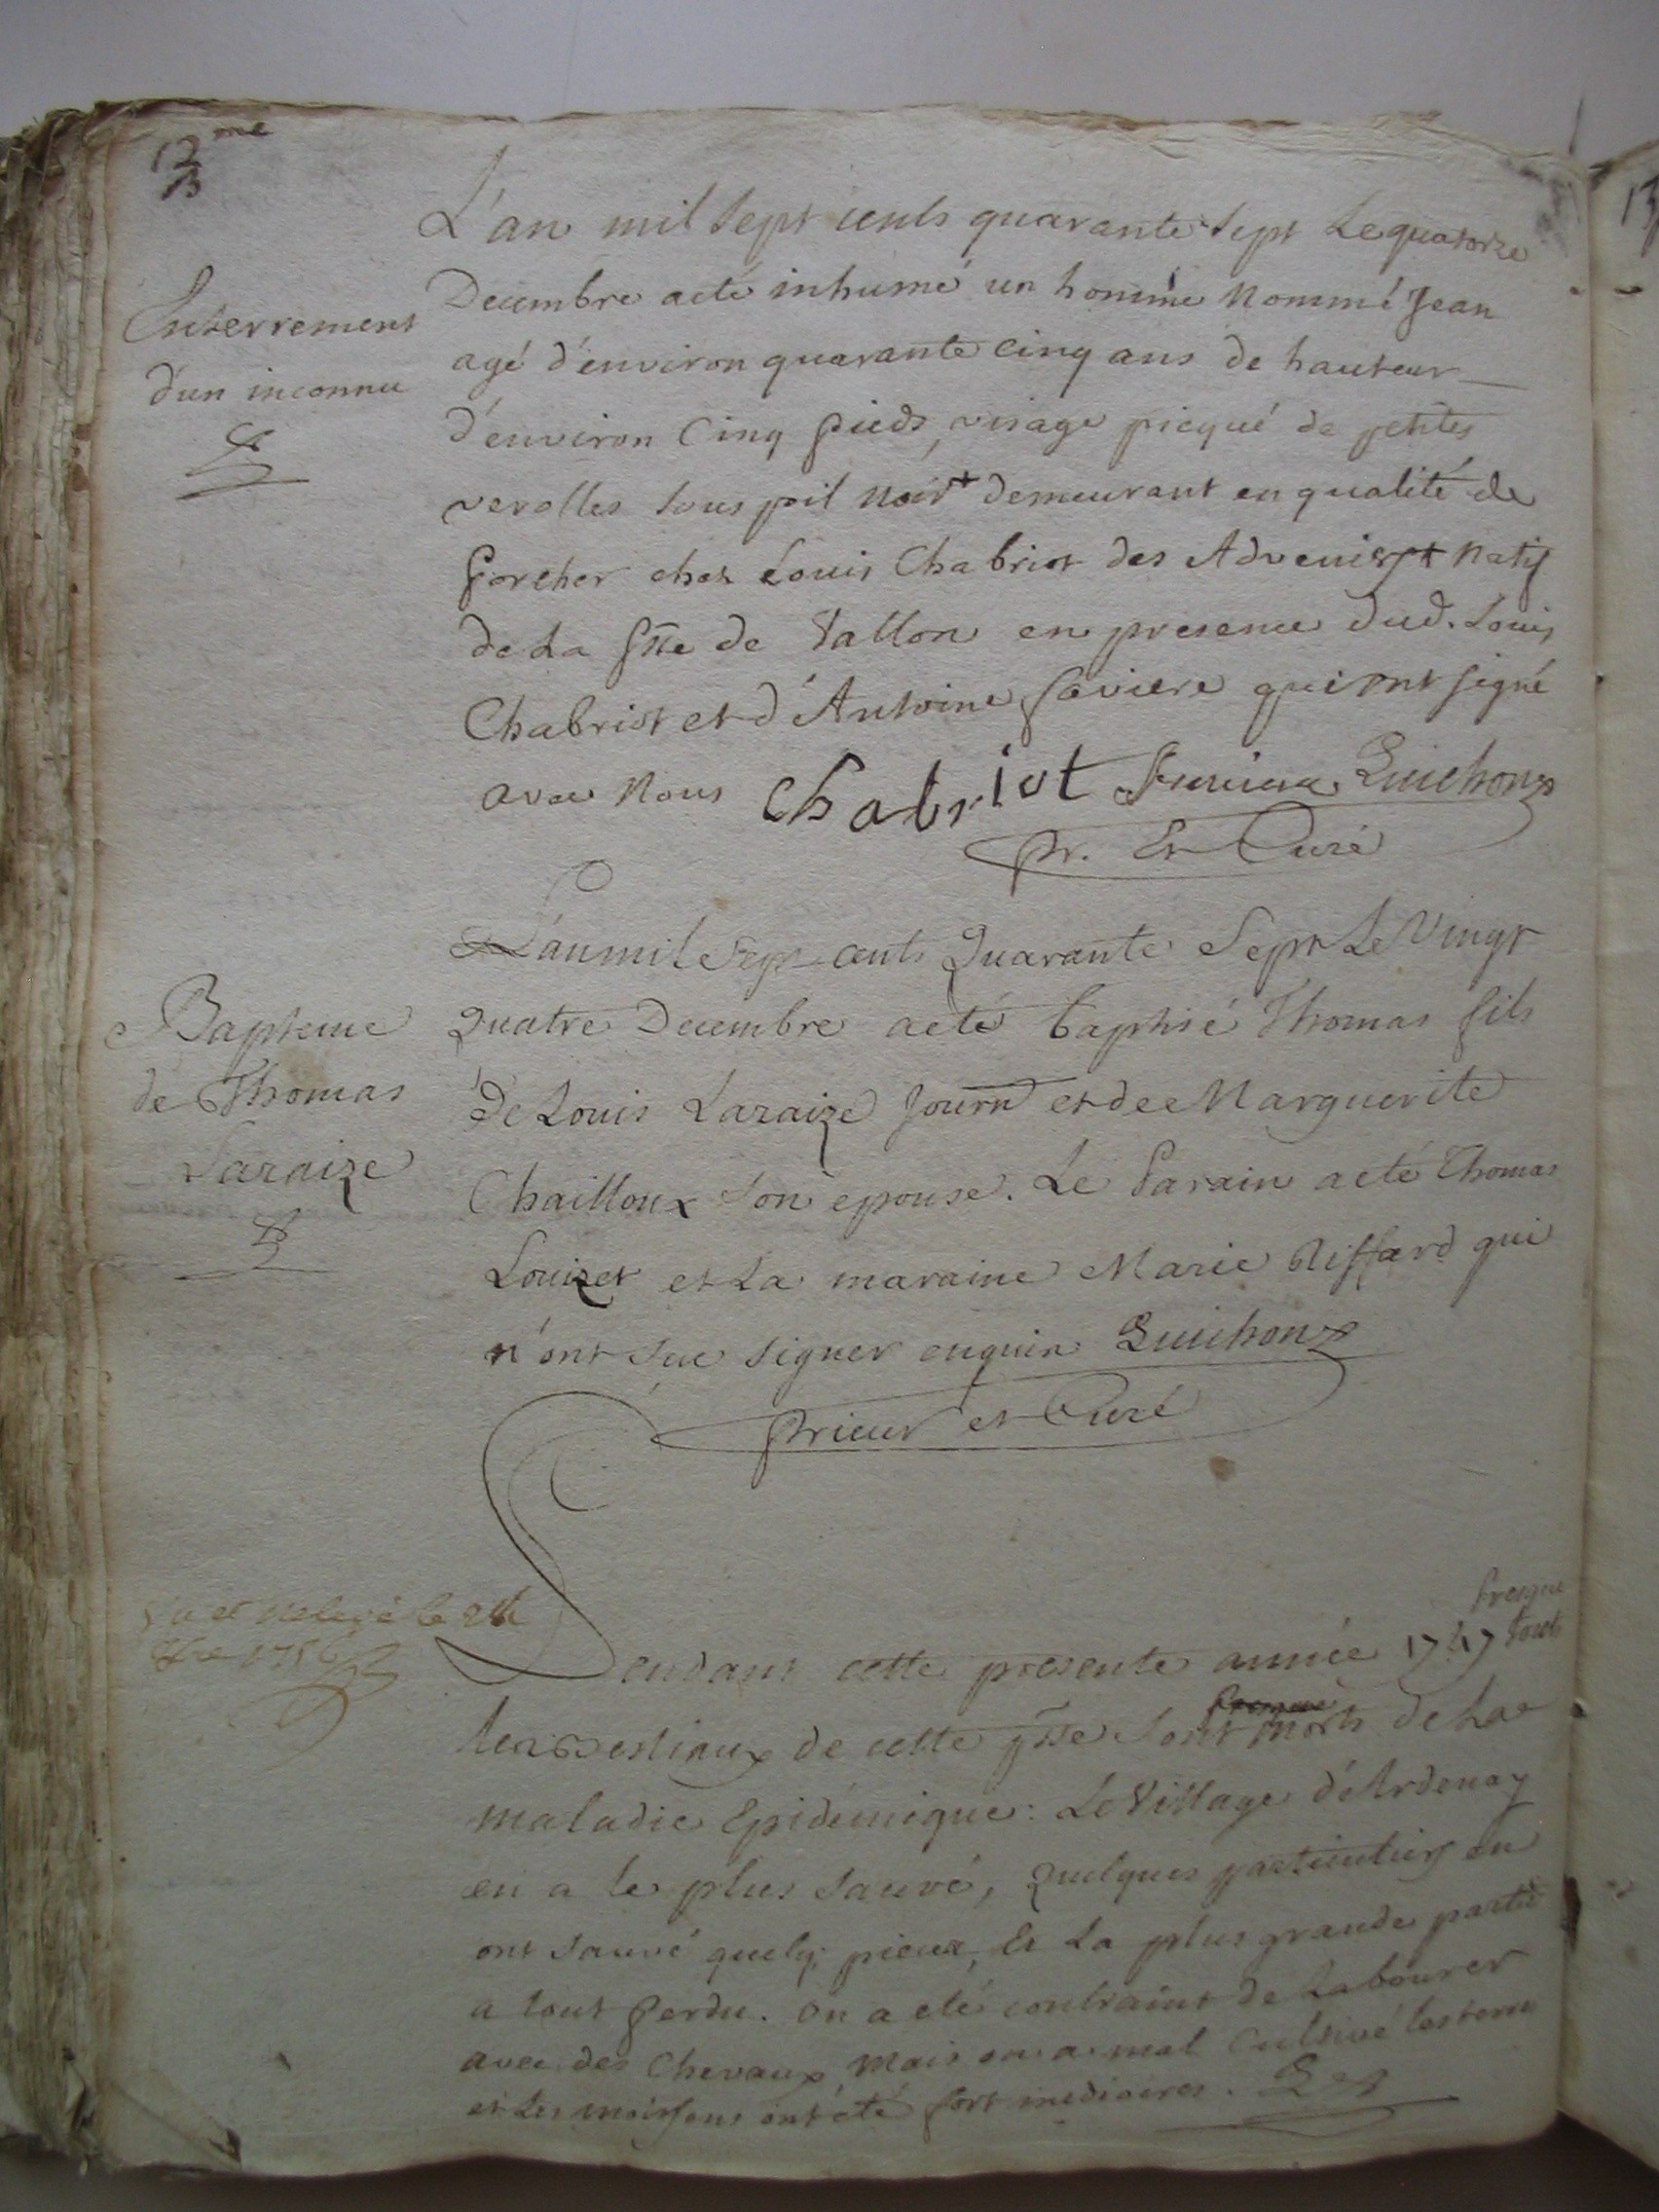 12me
L'an mil sept cents quarante sept le quatorze
Enterrement
d'un inconnu
Decembre a eté inhumé un homme nommé Jean
agé d'environ quarante cinq ans de hauteur
d'environ Cinq pieds, visage picqué de petites
verolles sous poil noir + demeurant en qualité de
porcher chez Louis Chabriot des natif
de la psse de Vallon en presence dud. Louis
Chabriot et d'Antoine qui ont signé
avec nous Chabriot Guichon
Pr. Et Curé
L'an mil sept cents Quarante Sept Le Vingt
Bapteme
de Thomas
Laraize
Quatre Decembre a eté baptisé Thomas fils
De Louis Laraize Journ et de Marguerite
Chailloux son epouse. Le Parain a eté Thomas
Louizet et La maraine Marie Riffard qui
n'ont sue signer enquis Guichon
Prieur et Curé
presque
Pendant cette presente année 1747 touts
les Bestiaux de cette psse sont morts de La
maladie Epidémique: Le Village d'Ardenay
en a le plus sauvé, Quelques particuliers en
ont sauvé quelq; pieces, Et La plus grande partie
a tout Perdu. on a eté contraint de Labourer
avec des Chevaux mais on a mal Cultivé les terres
et Les moissons ont été fort mediocres.